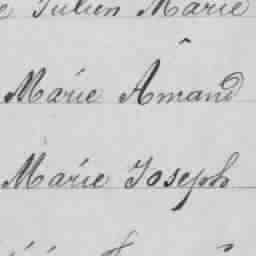 Julien Marie
Marie Amand
Marie Joseph